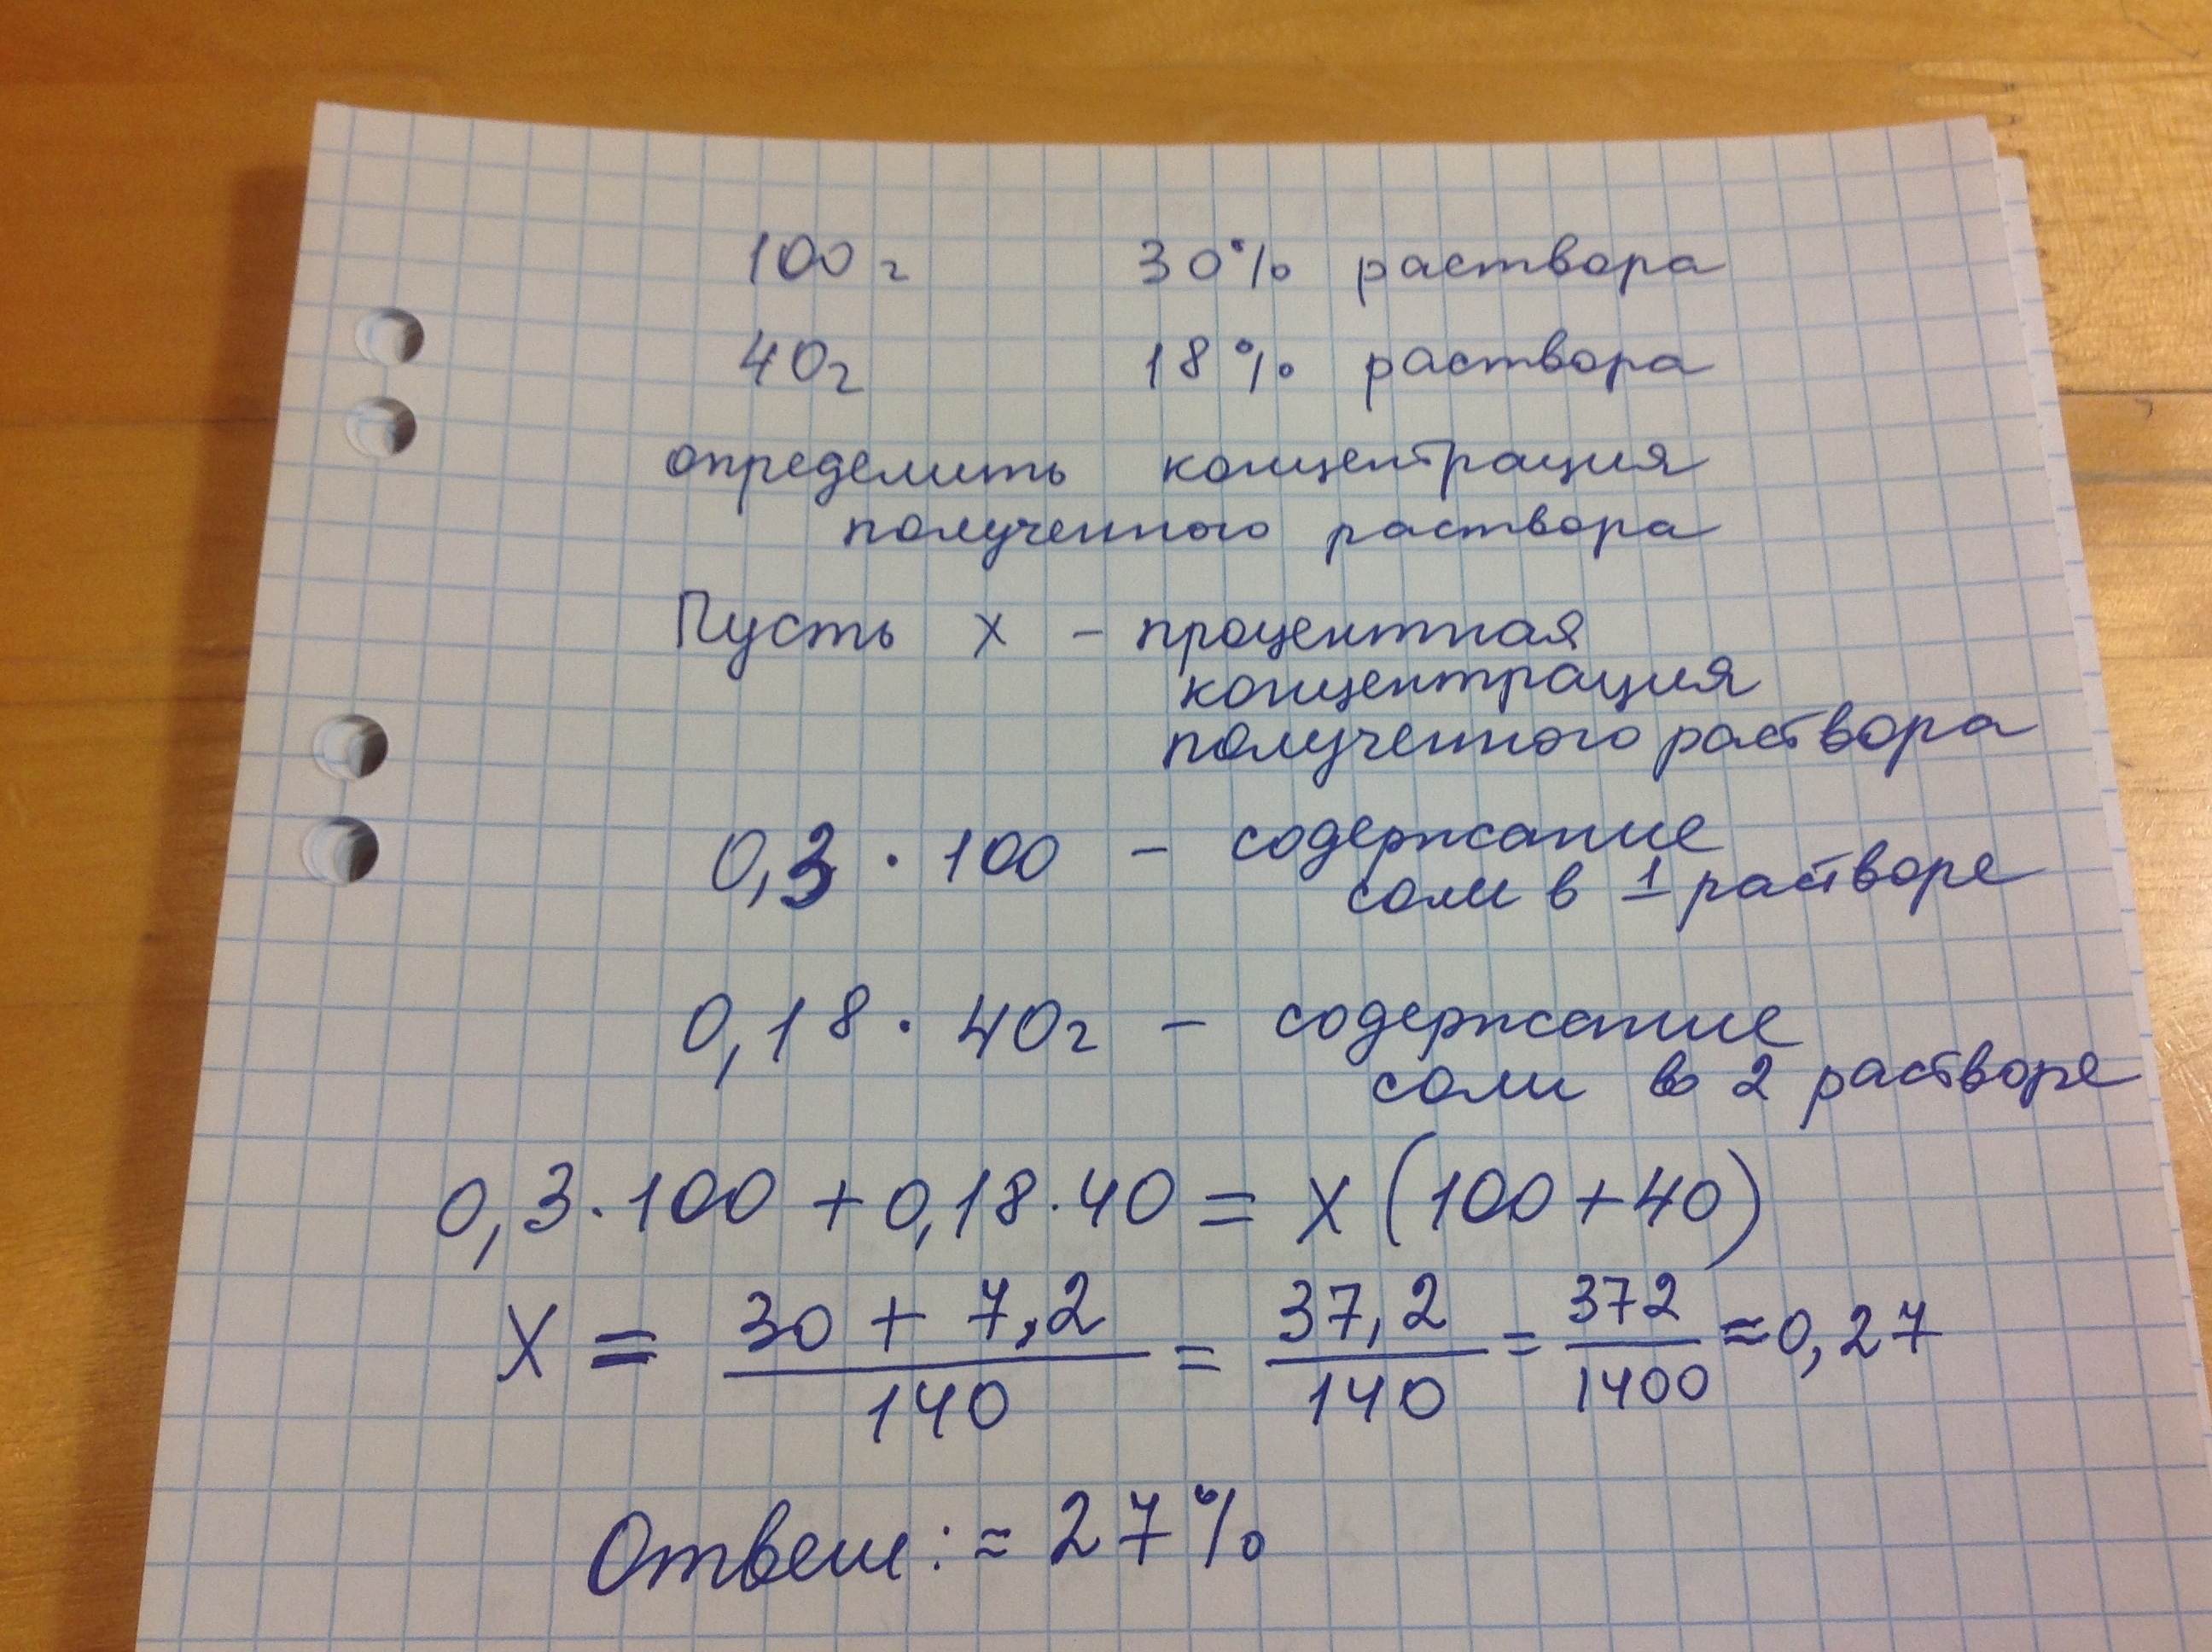 100 г 30% раствора
40г 18% раствора
определить концентрация
полученного раствора
Пусть x - процентная
концентрация
полученного раствора
0,3 · 100 - содержание
соли в 1 растворе
0,18 · 40г - содержание
соли в 2 растворе
0,3·100 + 0,18·40 = x (100+40)
x = (30 + 7,2)/140 = 37,2/140 = 372/1400 ≈ 0,27
Ответ: ≈ 27%